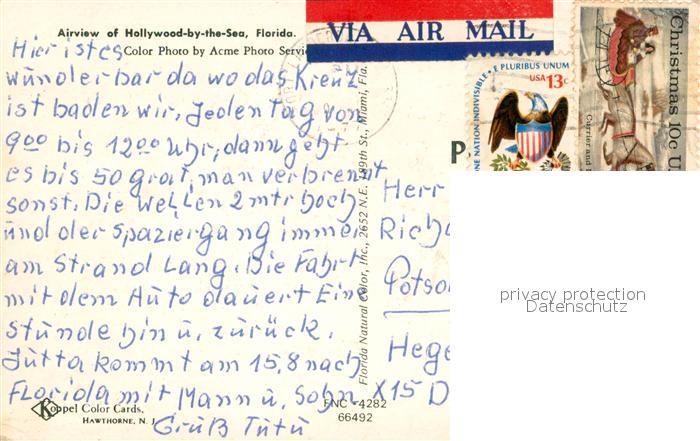 Airview of Hollywood-by-the-Sea, Florida.
Color Photo by Acme Photo Servi
VIA AIR MAIL
Hier ist es
wunderbar da wo das Kreuz
ist baden wir, Jeden tag von
9 00 bis 12 00 Uhr, dann geht
es bis 50 grat, man verbrennt
sonst. Die Wellen 2 mtr hoch
und der spaziergang immer
am Strand Lang. Die Fahrt
mit dem Auto dauert Ein
stunde hin u, zurück.
Jutta kommt am 15,8 nach
Florida mit Mann u, Sohn. X
Gruß Tutu
Koppel Color Cards,
HAWTHORNE, N. J.
FNC-4282
66492
Florida Natural Color, Inc., 2652 N.E. 189th St., Miami, Fla.
P
Herr
Richa
Potso
Hege
15 D
E PLURIBUS UNUM
USA 13c
ONE NATION INDIVISIBLE
Christmas 10c U
Currier and
privacy protection
Datenschutz